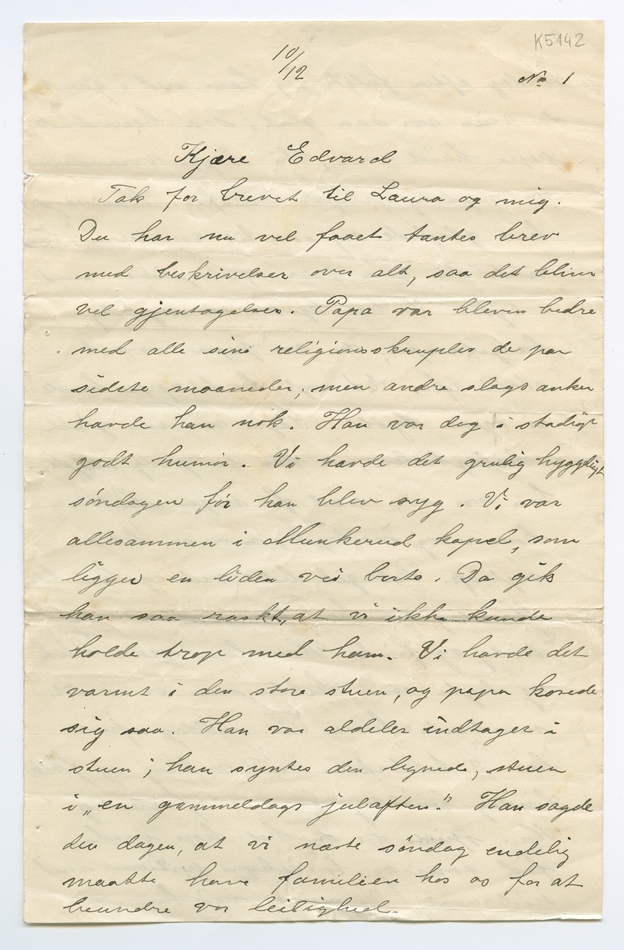 K5142
10/12
No 1
Kjære Edvard
Tak for brevet til Laura og mig.
Du har nu vel faaet tantes brev
med beskrivelser over alt, saa det blir
vel gjentagelser. Papa var bleven bedre
med alle sine religionsskrupler de par
sidste maaneder; men andre slags anker
havde han nok. Han var dog i stadigt
godt humør. Vi havde det grulig hyggeligt
søndagen før han blev syg. Vi var
allesammen i Munkerud kapel, som
ligger en liden vei borte. Da gik
han saa raskt, at vi ikke kunde
holde trop med ham. Vi havde det
varmt i den store stuen, og papa kosede
sig saa. Han var aldeles indtaget i
stuen; han syntes den lignede, stuen
i „en gammeldags julaften." Han sagde
den dagen, at vi næste søndag endelig
maatte have familien hos os for at
beundre vor leilighed.